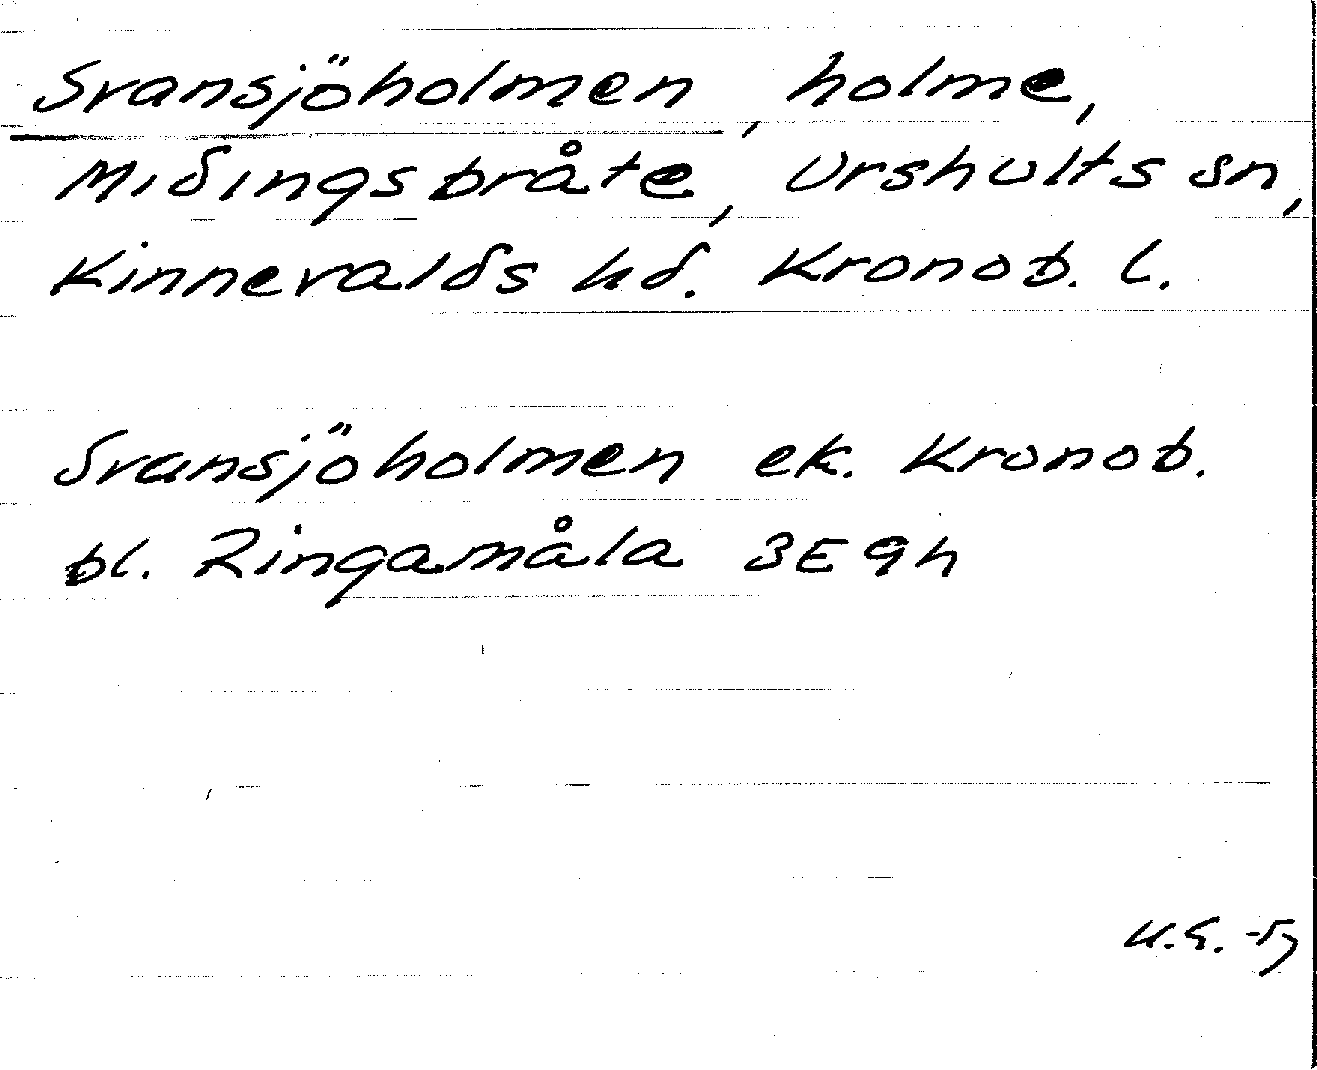 Svansjöholmen, holme,
Midingsbråte, Urshults sn,
Kinnevalds hd. Kronob. l.
Svansjöholmen ek. Kronob.
bl. Ringamåla 3E 9h